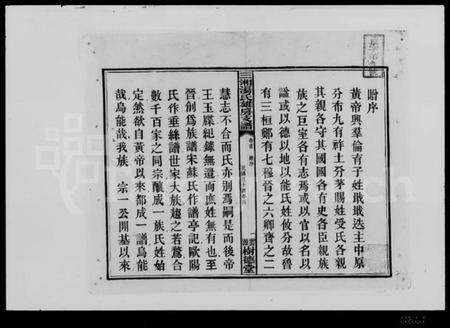 贈序
黃帝興羣倫育子姓戢戢迭主中原
分布九有祚土分茅賜姓受氏各親
其親各守其國國各有史各臣親族
族之巨室各有志焉或以官以名以
諡或以德以地以能氏姓攸分故魯
有三桓鄭有七穆晉之六卿齊之二
三湘湯氏雄房支譜
樹德堂
慧志不合而氏亦別焉嗣是而後帝
王玉牒紀錄無遺而庶姓無有也至
晉創為族譜宋蘇氏作譜亭記歐陽
氏作垂絲譜世家大族趨之若鶩合
數千百家之同宗釀成一族氏姓始
定然欲自黃帝以來都成一譜烏能
哉烏能哉我族 宗一公開基以來